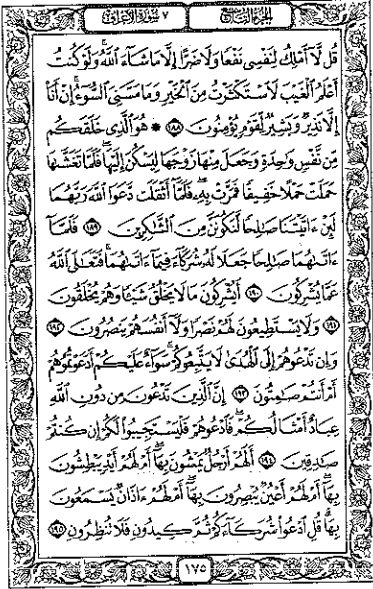 الجزء التاسع ٧ سورة الأعراف
قُل لَّآ أَمْلِكُ لِنَفْسِى نَفْعًا وَلَا ضَرًّا إِلَّا مَا شَآءَ ٱللَّهُ ۚ وَلَوْ كُنتُ
أَعْلَمُ ٱلْغَيْبَ لَٱسْتَكْثَرْتُ مِنَ ٱلْخَيْرِ وَمَا مَسَّنِىَ ٱلسُّوٓءُ ۚ إِنْ أَنَا۠
إِلَّا نَذِيرٌ وَبَشِيرٌ لِّقَوْمٍ يُؤْمِنُونَ ١٨٨ ۞ هُوَ ٱلَّذِى خَلَقَكُم
مِّن نَّفْسٍ وَٰحِدَةٍ وَجَعَلَ مِنْهَا زَوْجَهَا لِيَسْكُنَ إِلَيْهَا ۖ فَلَمَّا تَغَشَّىٰهَا
حَمَلَتْ حَمْلًا خَفِيفًا فَمَرَّتْ بِهِۦ ۖ فَلَمَّآ أَثْقَلَت دَّعَوَا ٱللَّهَ رَبَّهُمَا
لَئِنْ ءَاتَيْتَنَا صَٰلِحًا لَّنَكُونَنَّ مِنَ ٱلشَّٰكِرِينَ ١٨٩ فَلَمَّآ
ءَاتَىٰهُمَا صَٰلِحًا جَعَلَا لَهُۥ شُرَكَآءَ فِيمَآ ءَاتَىٰهُمَا ۚ فَتَعَٰلَى ٱللَّهُ
عَمَّا يُشْرِكُونَ ١٩٠ أَيُشْرِكُونَ مَا لَا يَخْلُقُ شَيْـًٔا وَهُمْ يُخْلَقُونَ
١٩١ وَلَا يَسْتَطِيعُونَ لَهُمْ نَصْرًا وَلَآ أَنفُسَهُمْ يَنصُرُونَ ١٩٢
وَإِن تَدْعُوهُمْ إِلَى ٱلْهُدَىٰ لَا يَتَّبِعُوكُمْ ۚ سَوَآءٌ عَلَيْكُمْ أَدَعَوْتُمُوهُمْ
أَمْ أَنتُمْ صَٰمِتُونَ ١٩٣ إِنَّ ٱلَّذِينَ تَدْعُونَ مِن دُونِ ٱللَّهِ
عِبَادٌ أَمْثَالُكُمْ ۖ فَٱدْعُوهُمْ فَلْيَسْتَجِيبُوا۟ لَكُمْ إِن كُنتُمْ
صَٰدِقِينَ ١٩٤ أَلَهُمْ أَرْجُلٌ يَمْشُونَ بِهَآ ۖ أَمْ لَهُمْ أَيْدٍ يَبْطِشُونَ
بِهَآ ۖ أَمْ لَهُمْ أَعْيُنٌ يُبْصِرُونَ بِهَآ ۖ أَمْ لَهُمْ ءَاذَانٌ يَسْمَعُونَ
بِهَا ۗ قُلِ ٱدْعُوا۟ شُرَكَآءَكُمْ ثُمَّ كِيدُونِ فَلَا تُنظِرُونِ ١٩٥
١٧٥